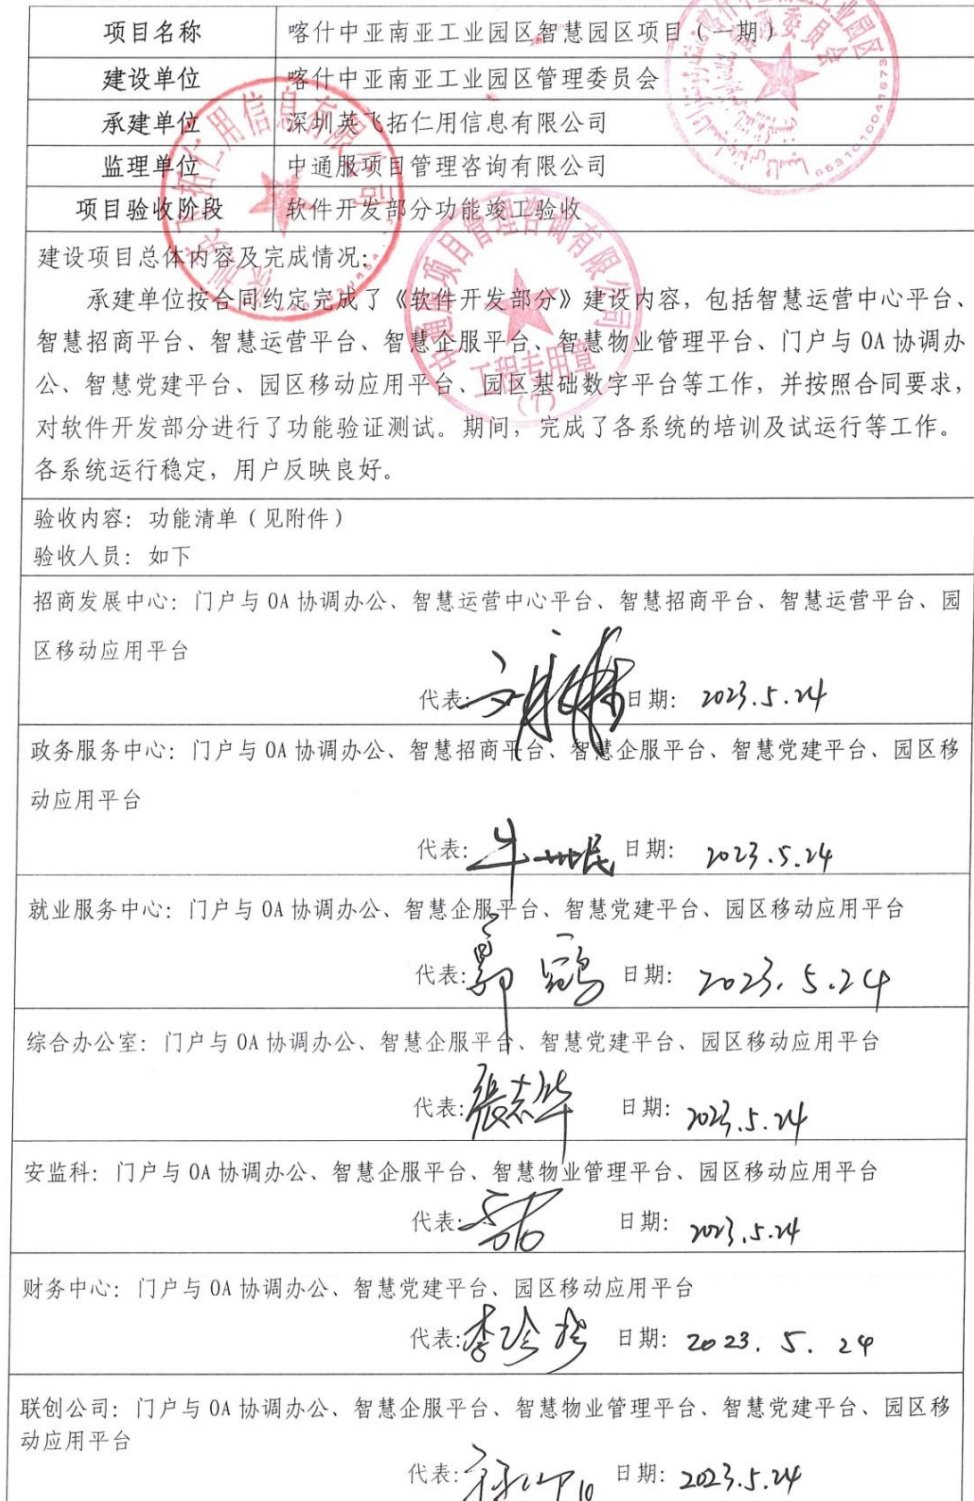 项目名称 喀什中亚南亚工业园区智慧园区项目（一期）
建设单位 喀什中亚南亚工业园区管理委员会
承建单位 深圳英飞拓仁用信息有限公司
监理单位 中通服项目管理咨询有限公司
项目验收阶段 软件开发部分功能竣工验收
建设项目总体内容及完成情况：
承建单位按合同约定完成了《软件开发部分》建设内容，包括智慧运营中心平台、
智慧招商平台、智慧运营平台、智慧企服平台、智慧物业管理平台、门户与 OA 协调办
公、智慧党建平台、园区移动应用平台、园区基础数字平台等工作，并按照合同要求，
对软件开发部分进行了功能验证测试。期间，完成了各系统的培训及试运行等工作。
各系统运行稳定，用户反映良好。
深圳英飞拓仁用信息有限公司
中通服项目管理咨询有限公司
工程专用章
（7）
验收内容：功能清单（见附件）
验收人员：如下
招商发展中心：门户与 OA 协调办公、智慧运营中心平台、智慧招商平台、智慧运营平台、园
区移动应用平台
代表： 日期： 2023.5.24
政务服务中心：门户与 OA 协调办公、智慧招商平台、智慧企服平台、智慧党建平台、园区移
动应用平台
代表： 日期： 2023.5.24
就业服务中心：门户与 OA 协调办公、智慧企服平台、智慧党建平台、园区移动应用平台
代表：郭 日期： 2023.5.24
综合办公室：门户与 OA 协调办公、智慧企服平台、智慧党建平台、园区移动应用平台
代表：張志华 日期： 2023.5.24
安监科：门户与 OA 协调办公、智慧企服平台、智慧物业管理平台、园区移动应用平台
代表： 日期： 2023.5.24
财务中心：门户与 OA 协调办公、智慧党建平台、园区移动应用平台
代表：李 日期： 2023.5.24
联创公司：门户与 OA 协调办公、智慧企服平台、智慧物业管理平台、智慧党建平台、园区移
动应用平台
代表： 日期： 2023.5.24